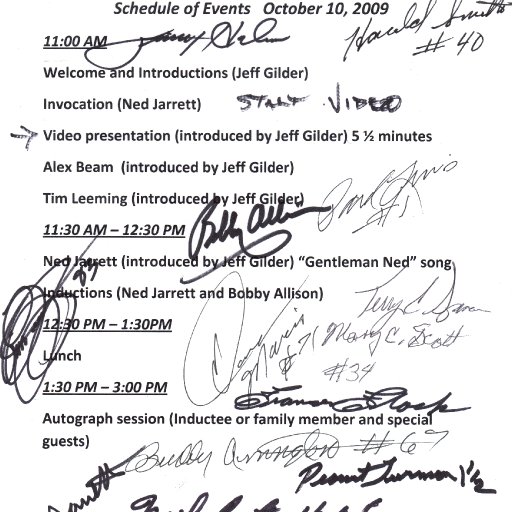 Schedule of Events October 10, 2009
Harold Smith
# 40
11:00 AM
Welcome and Introductions (Jeff Gilder)
Invocation (Ned Jarrett) START VIDEO
→ Video presentation (introduced by Jeff Gilder) 5 ½ minutes
Alex Beam (introduced by Jeff Gilder)
Tim Leeming (introduced by Jeff Gilder)
#1
11:30 AM – 12:30 PM Bobby Allison
Ned Jarrett (introduced by Jeff Gilder) “Gentleman Ned” song
Inductions (Ned Jarrett and Bobby Allison)
Terry C.
12:30 PM – 1:30PM
#71 Mary C. Scott
Lunch
#34
1:30 PM – 3:00 PM
Frances Flock
Autograph session (Inductee or family member and special
guests)
Buddy Arrington #67
Peanut Turman 1½